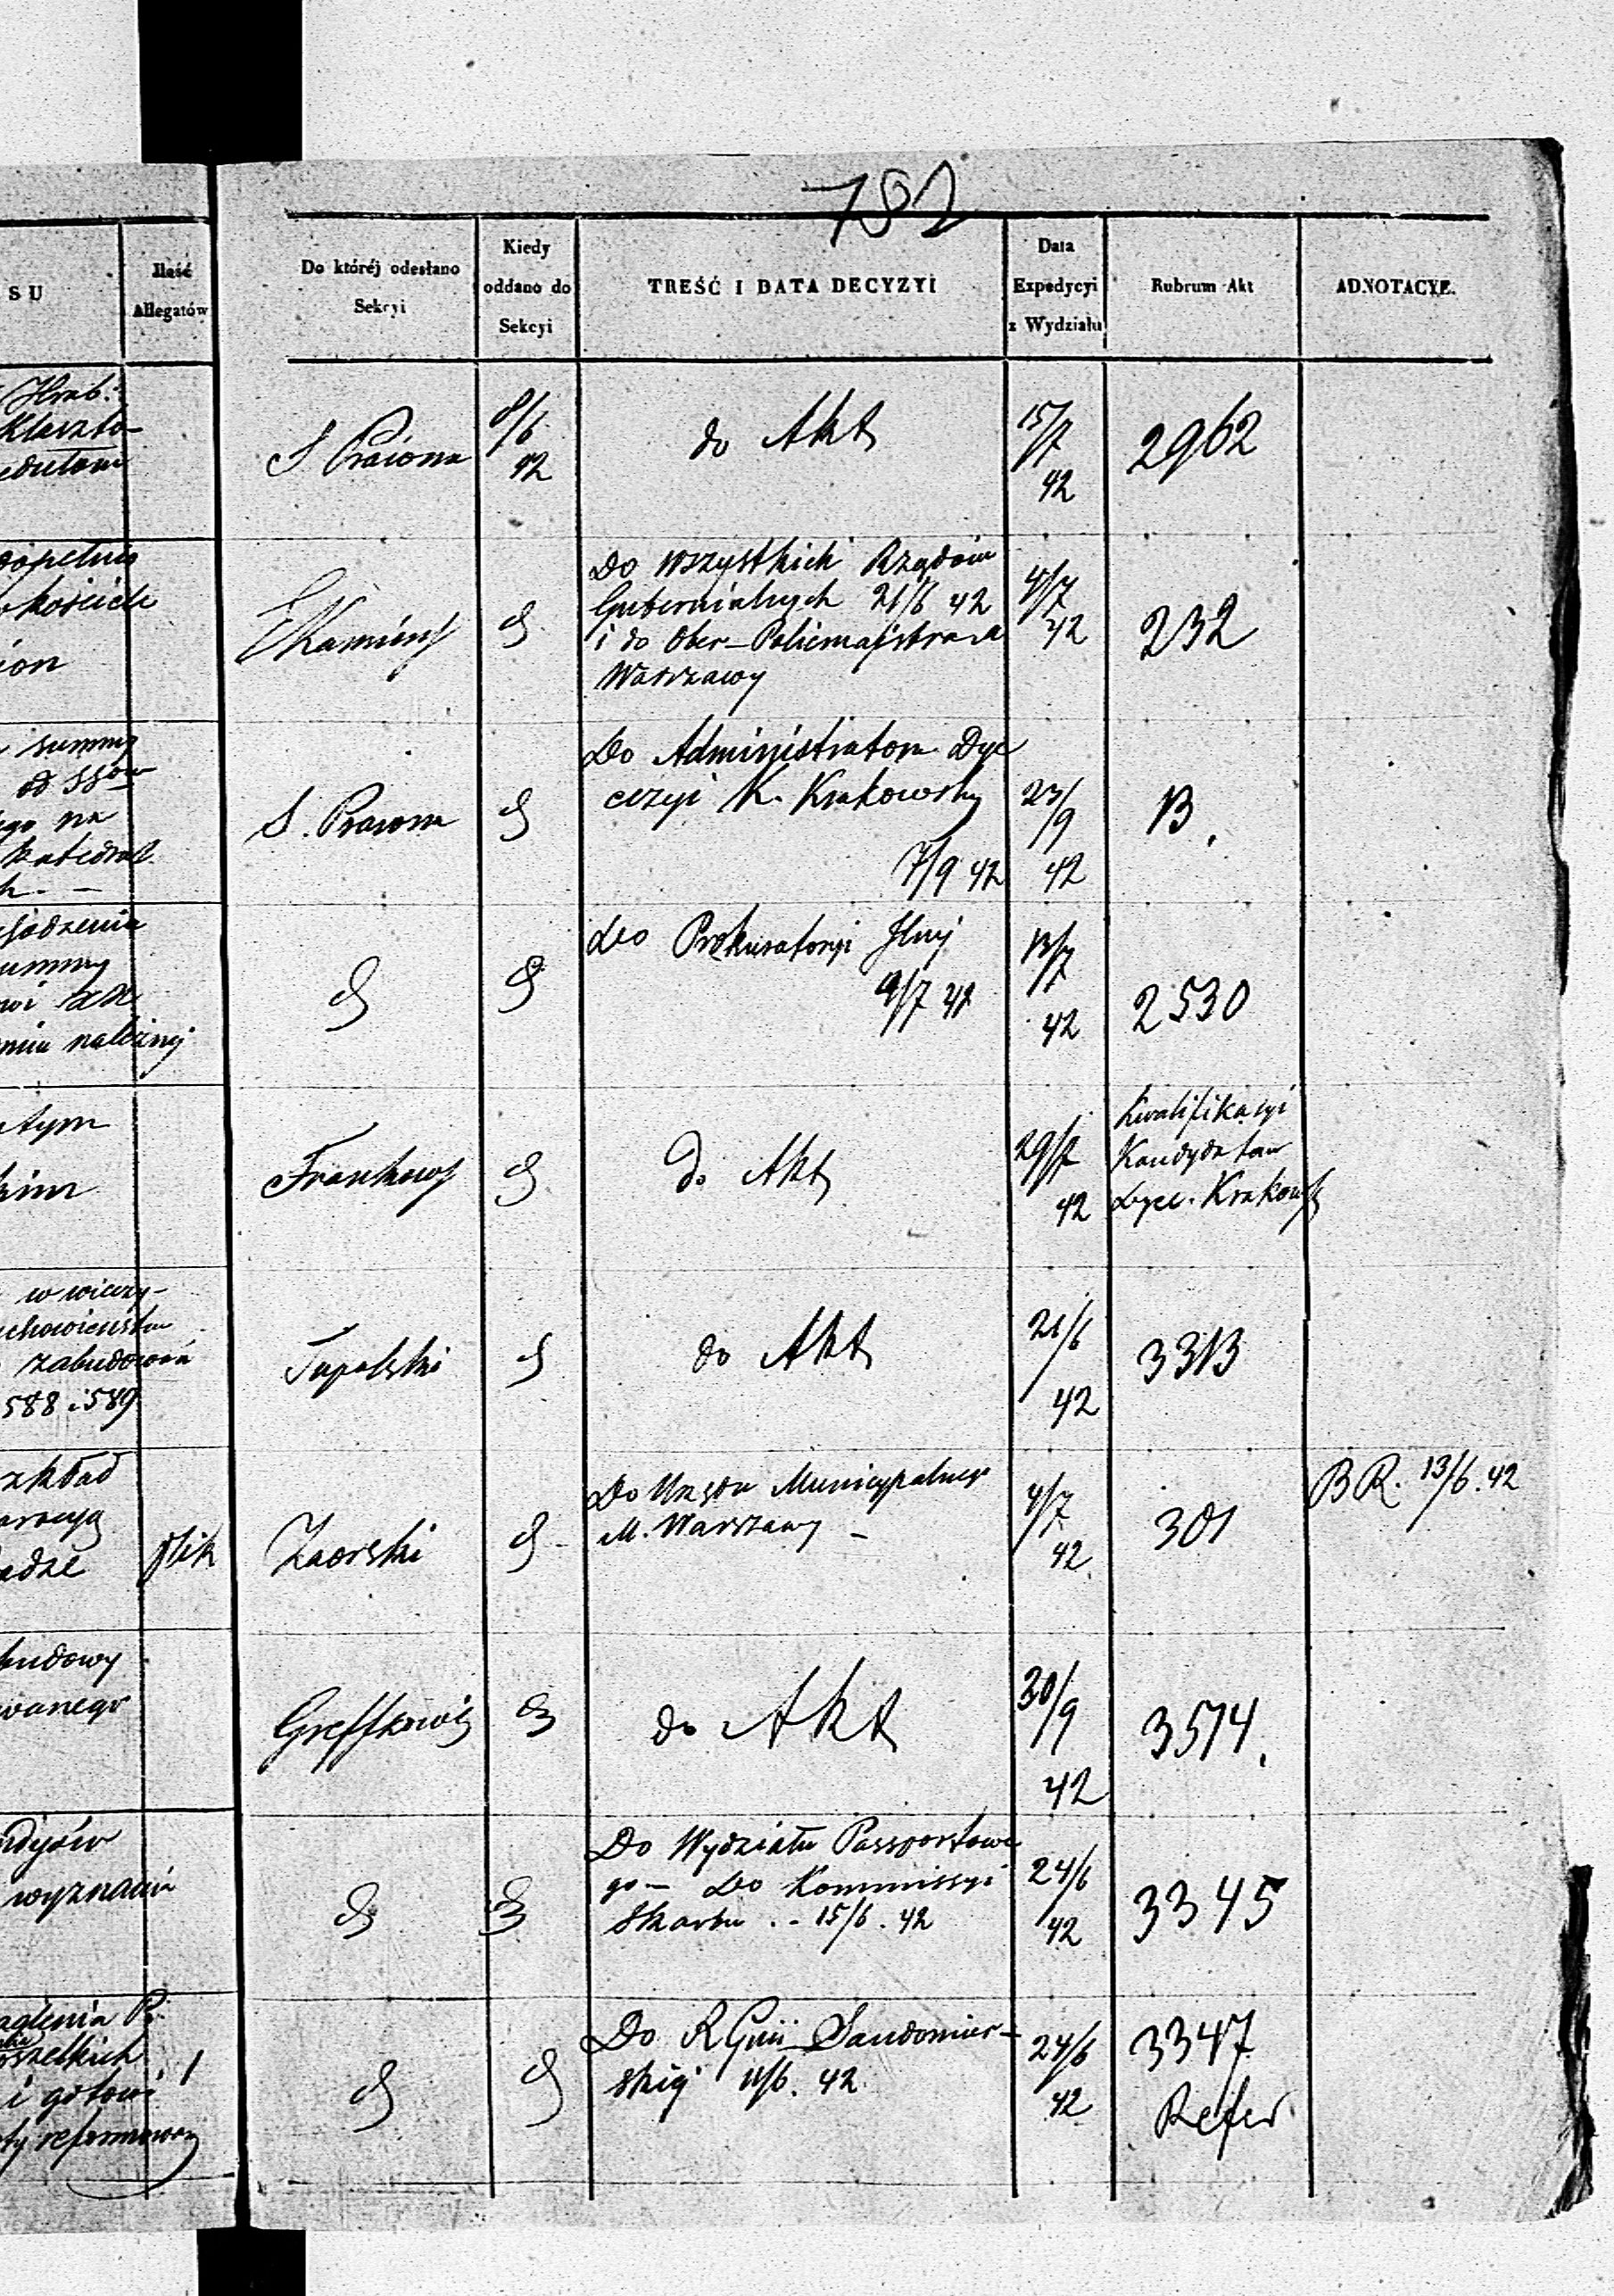 782
SU
Ilość
Allegatów
Do któréj odesłano
Sekcyi
Kiedy
oddano do
Sekcyi
TREŚĆ I DATA DECYZYI
Data
Expedycyi
z Wydziału
Rubrum Akt
ADNOTACYE.
Hrab:
Klaszto-
S Prawna
8/6
42
do Akt
15/7
42
2962
dopełnie
kościele
ion
EKamińs
d
Do wszystkich Rządów
Gubernialnych 21/6 42
i do Ober-Policmajstra M
Warszawy
4/7
42
232
summy
od SSów
ego na
katedral
S. Prawna
d
Do Administratora Dye
cezyi K. Krakowsky
7/9 42
23/9
42
13.
sadzenia
summy
owi
należnej
d
d
do Prokuratoryi Jlnej
9/7 42
13/7
42
2530
tym
kim
Frankows
d
do Akt
29/7
42
Kwalifikacyi
Kandydatów
Dyec. Krakows
w wieczy-
uchowieństw
zabudowań
588 i 589
Tupalski
d
do Akt
21/6
42
3313
zkład
adze
plik
Zaorski
d
Do Urzędu Municypalnego
M. Warszawy -
4/7
42
301
BR. 13/6. 42
budowy
wanego
Greffkowi
d
do Akt
30/9
42
3574.
wyznania
d
d
Do Wydziału Passportowe
go - do Kommissyi
Skarbu . - 15/6. 42
24/6
42
3345
wszelkich
i gotowi
ty reformowan
1
d
d
Do RGnii Sandomier-
skiej 11/6. 42
24/6
42
3347
Refer